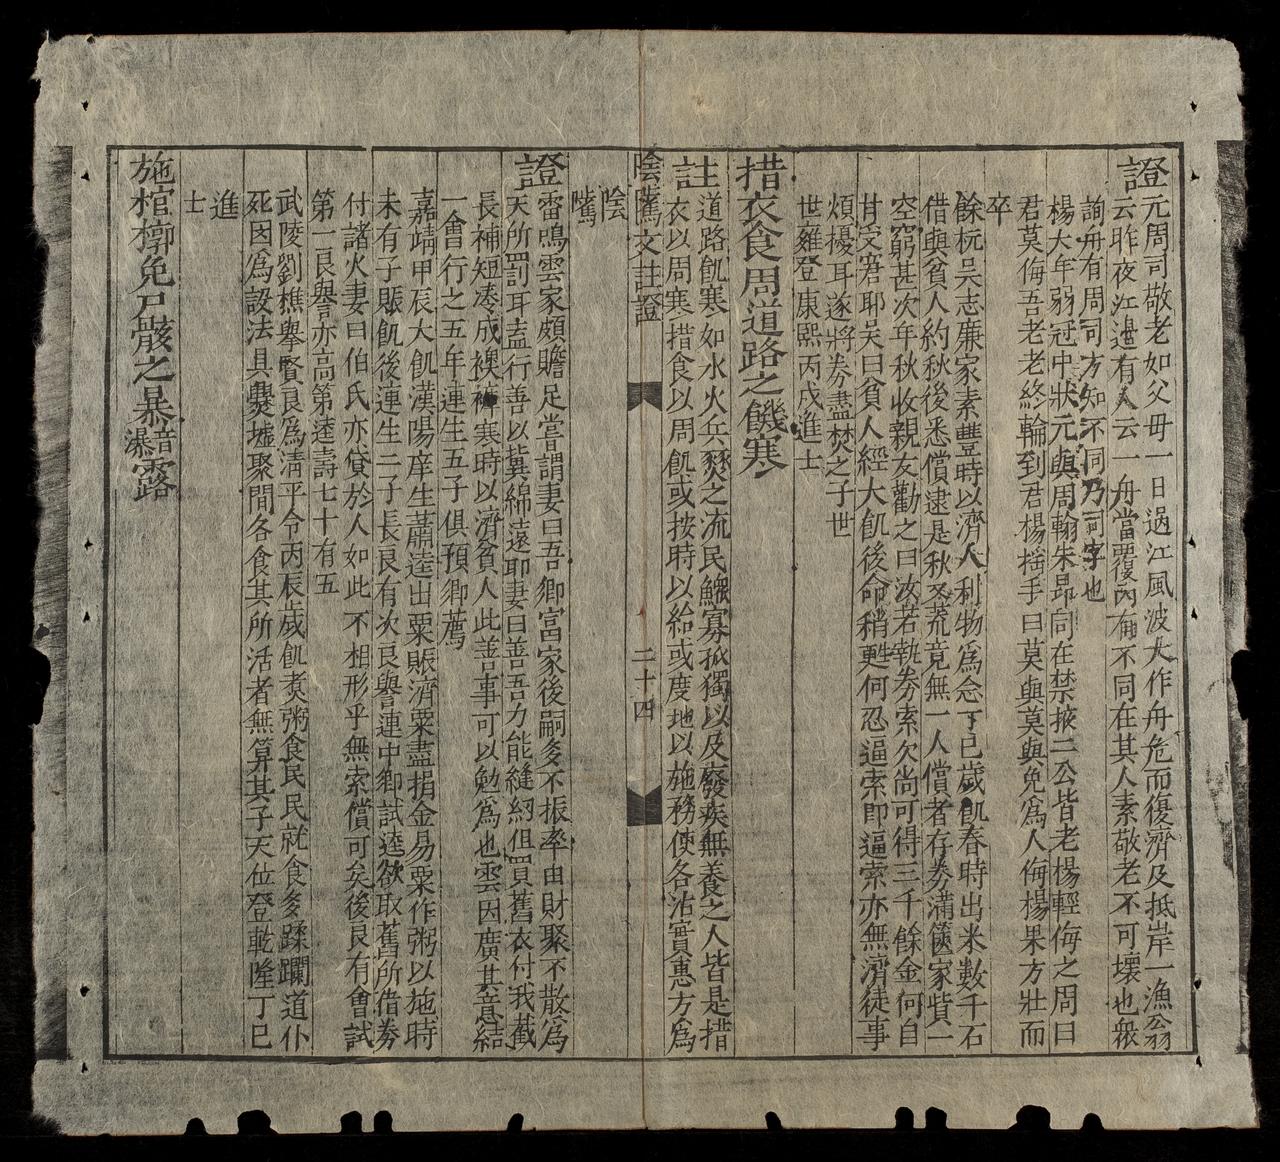 證元周司敬老如父母一日過江風波大作舟危而復濟及抵岸一漁翁
云昨夜江邊有人云一舟當覆內有不同在其人素敬老不可壞也衆
詢舟有周司方知不同乃司字也
楊大年弱冠中狀元與周翰朱昻同在禁掖二公皆老楊輕侮之周曰
君莫侮吾老老終輪到君楊搖手曰莫與莫與免爲人侮楊果方壯而
卒
餘杭吳志廉家素豐時以濟人利物爲念丁巳歲飢春時出米數千石
借與貧人約秋後悉償逮是秋又荒竟無一人償者存券滿篋家貲一
空窮甚次年秋收親友勸之曰汝若執券索欠尚可得三千餘金何自
甘受窘耶吳曰貧人經大飢後命稍甦何忍逼索即逼索亦無濟徒事
煩擾耳遂將券盡焚之子世
世雞登康熙丙戌進士
措衣食周道路之饑寒
註道路飢寒如水火兵燹之流民鰥寡孤獨以及廢疾無養之人皆是措
衣以周寒措食以周飢或按時以給或度地以施務使各沾實惠方爲
陰騭文註證 二十四
陰
騭
證雷鳴雲家頗贍足嘗謂妻曰吾鄉富家後嗣多不振率由財聚不散爲
天所罰耳盍行善以冀綿遠耶妻曰善吾力能縫紉但買舊衣付我截
長補短湊成襖褲寒時以濟貧人此善事可以勉爲也雲因廣其意結
一會行之五年連生五子俱預鄉薦
嘉靖甲辰大飢漢陽庠生蕭逵出粟賬濟粟盡捐金易粟作粥以施時
未有子賬飢後連生二子長良有次良譽連中鄉試逵欲取舊所借券
付諸火妻曰伯氏亦貸於人如此不相形乎無索償可矣後良有會試
第一良譽亦高第逵壽七十有五
武陵劉樵舉賢良爲淸平令丙辰歲飢煮粥食民民就食多蹂躙道仆
死因爲設法具爨墟聚間各食其所活者無算其子天位登乾隆丁巳
進
士
施棺槨免尸骸之暴音瀑露